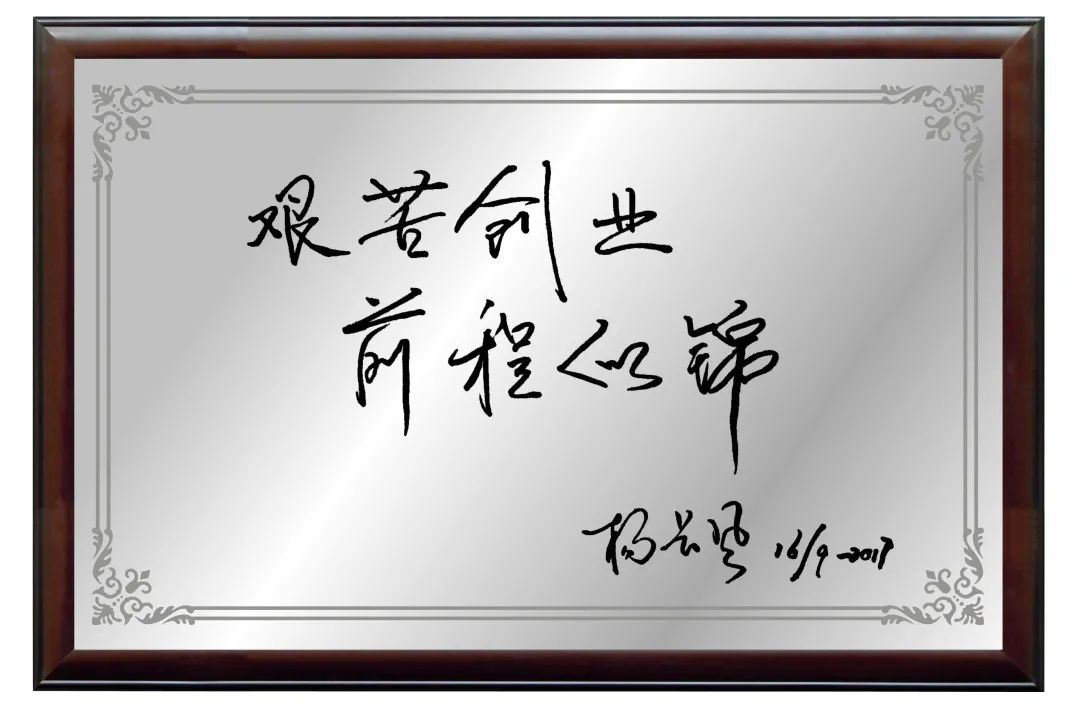 艰苦创业
前程似锦
杨 16/9-2017